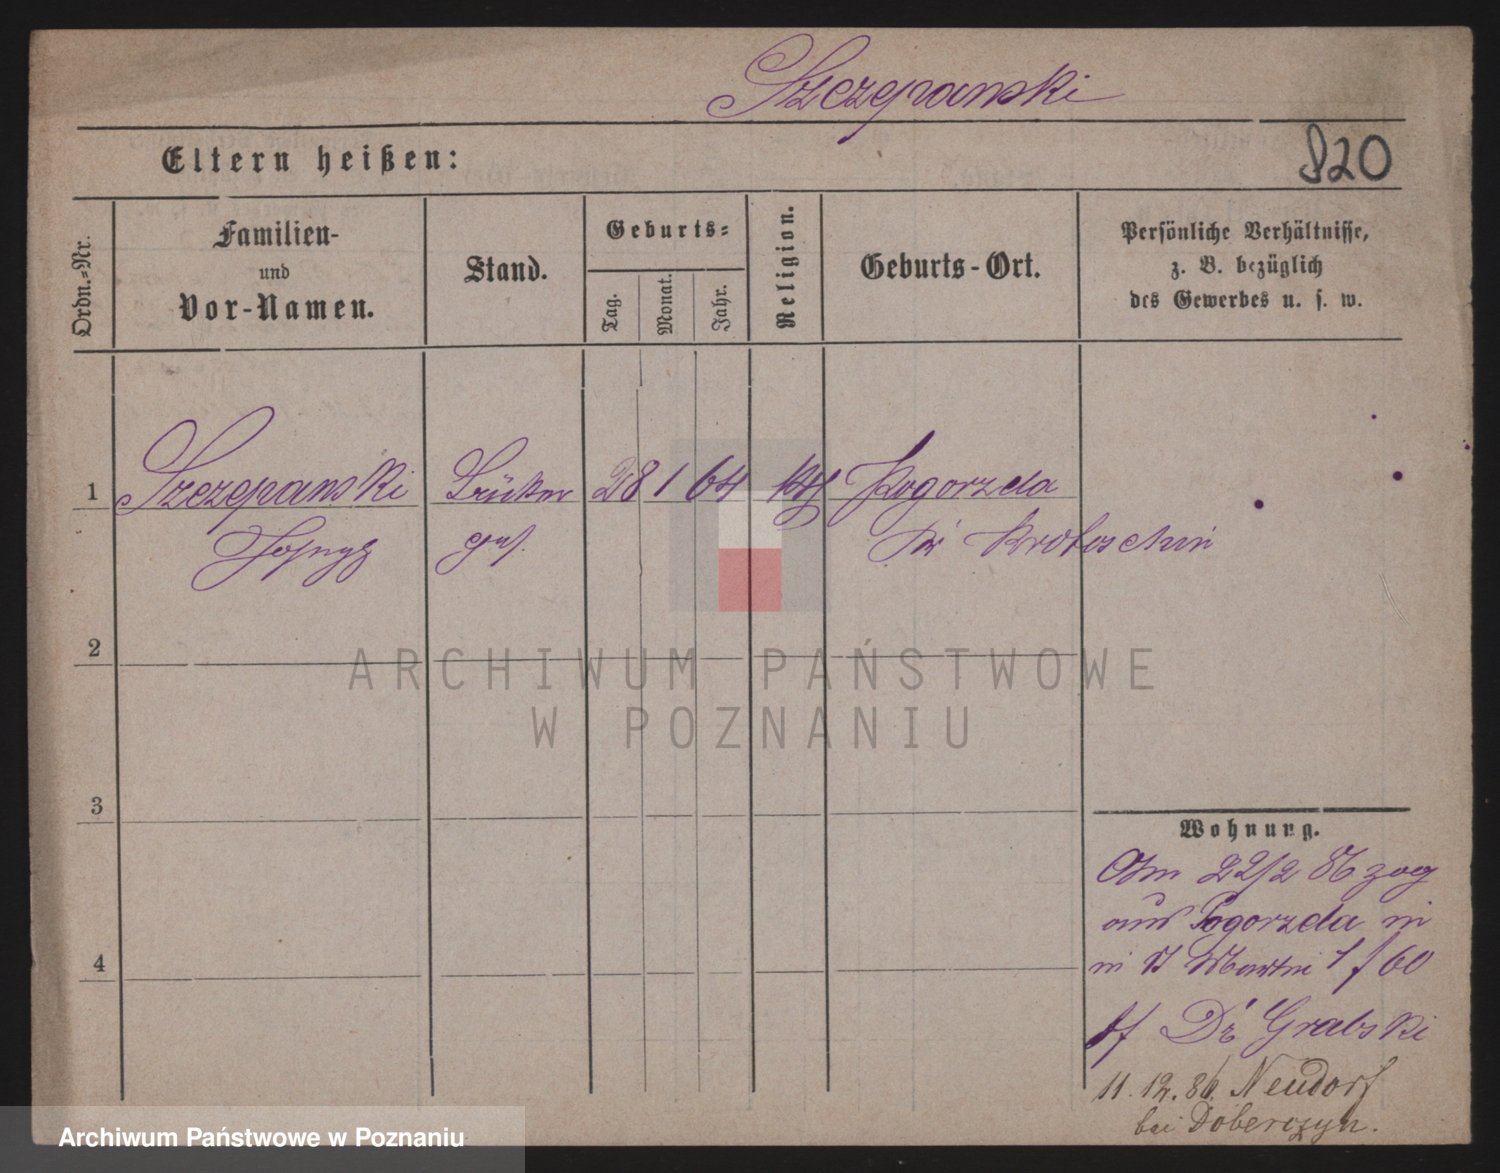 Szczepanski
Eltern heißen:
820
Ordn.=Nr.
Familien-
und
Vor-Namen.
Stand.
Geburts=
Tag.
Monat.
Jahr.
Religion.
Geburts-Ort.
Persönliche Verhältnisse,
z. B. bezüglich
des Gewerbes u. s. w.
1
Szczepanski
28 1 64
kth
Pogorzela
Kr Krotoschin
2
ARCHIWUM PAŃSTWOWE
W POZNANIU
3
Wohnung.
Am 22/2 86 zog
aus Pogorzela
St Martin 1 f 60
bei Dr Grabski
4
11.12.86. Neudorf
bei Doberczyn.
Archiwum Państwowe w Poznaniu